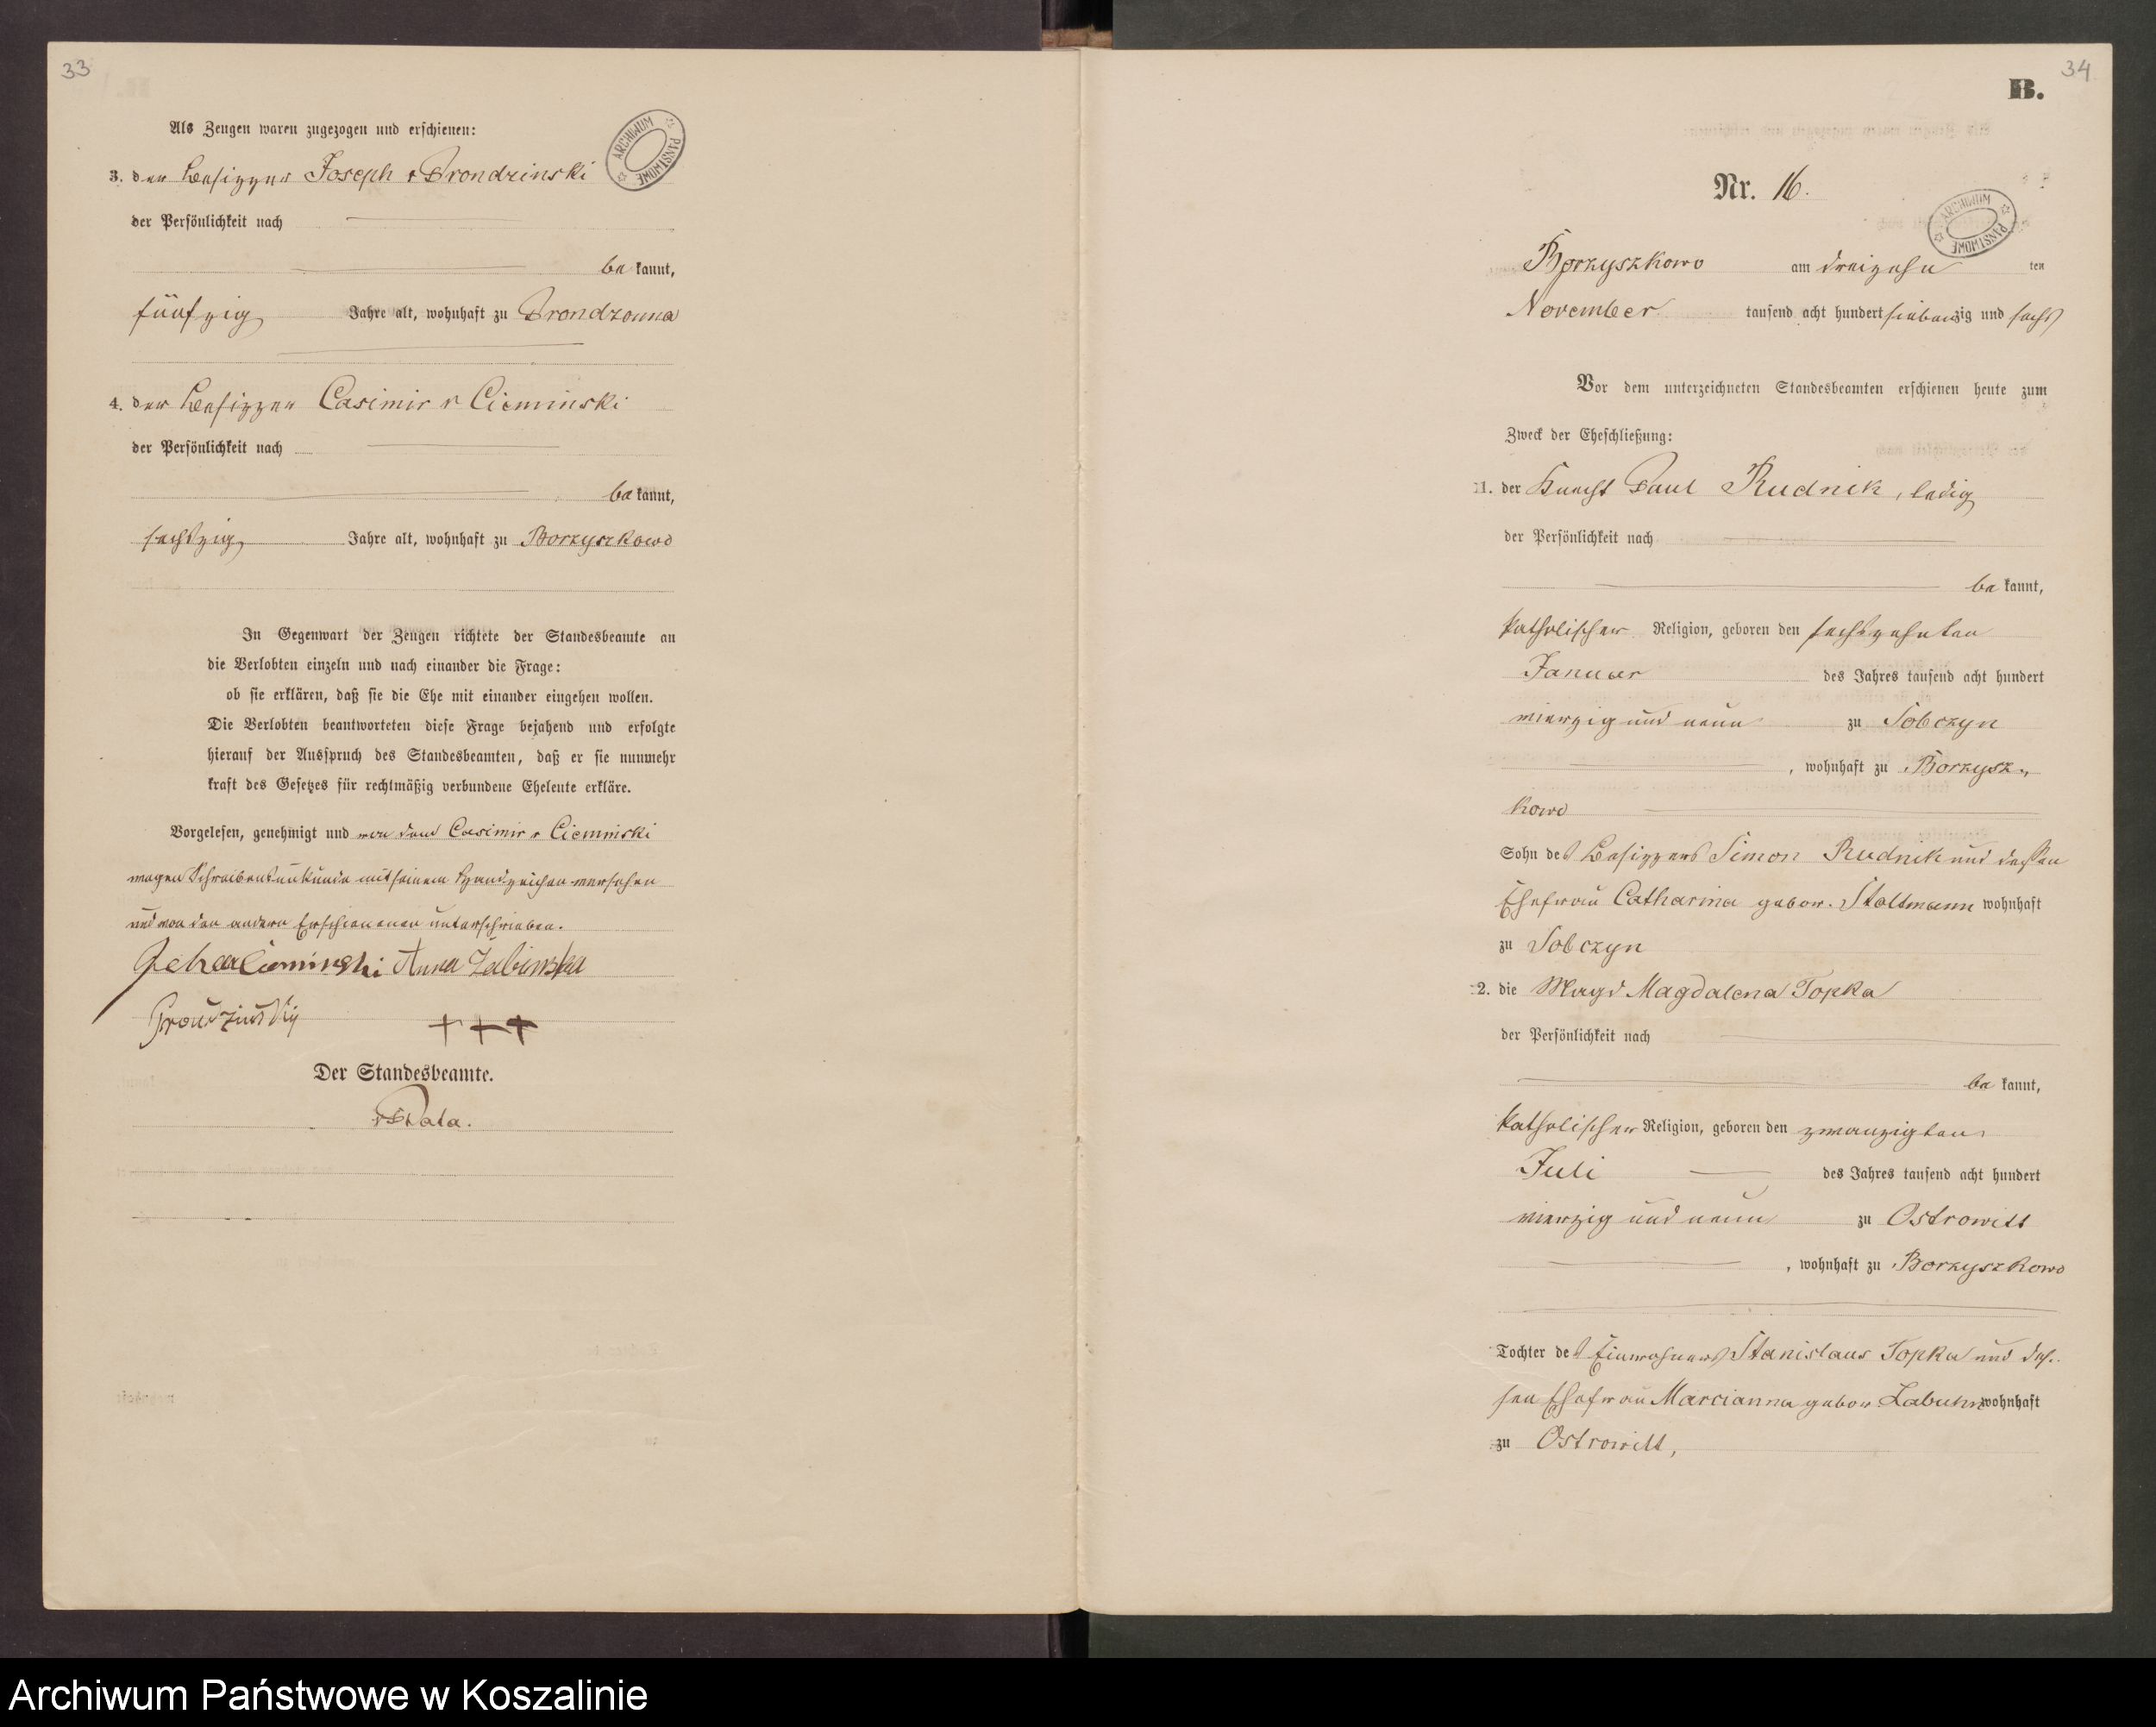 33
Als Zeugen waren zugezogen und erschienen:
3. der Besitzer Joseph v Prondzinski
der Persönlichkeit nach
be kannt,
fünfzig Jahre alt, wohnhaft zu Prondzonna
4. der Besitzer Casimir v Cieminski
der Persönlichkeit nach
be kannt,
sechszig Jahre alt, wohnhaft zu Borzyszkowo
In Gegenwart der Zeugen richtete der Standesbeamte an
die Verlobten einzeln und nach einander die Frage:
ob sie erklären, daß sie die Ehe mit einander eingehen wollen.
Die Verlobten beantworteten diese Frage bejahend und erfolgte
hierauf der Ausspruch des Standesbeamten, daß er sie nunmehr
kraft des Gesetzes für rechtmäßig verbundene Eheleute erkläre.
Vorgelesen, genehmigt und von dem Casimir v Cieminski
wegen Schreibensunkunde mit seinem Handzeichen versehen
und von den andern Erschienenen unterschrieben.
Anna
+++
Der Standesbeamte.
ARCHIWUM PAŃSTWOWE
34
B.
Nr. 16.
ARCHIWUM PAŃSTWOWE
Borzyszkowo am dreizehn ten
November tausend acht hundert siebenzig und sechs
Vor dem unterzeichneten Standesbeamten erschienen heute zum
Zweck der Eheschließung:
1. der Knecht Paul Rudnik, ledig
der Persönlichkeit nach
be kannt,
katholischer Religion, geboren den sechszehnten
Januar des Jahres tausend acht hundert
vierzig und neun zu Sobczyn
, wohnhaft zu Borzysz„
kowo
Sohn des Besitzers Simon Rudnik und dessen
Ehefrau Catharina gebor. Stoltmann wohnhaft
zu Sobczyn
2. die Magd Magdalena Topka
der Persönlichkeit nach
be kannt,
katholischer Religion, geboren den zwanzigten
Juli des Jahres tausend acht hundert
vierzig und neun zu Ostrowitt
, wohnhaft zu Borzyszkowo
Tochter des Einwohners Stanislaus Topka und des-
sen Ehefrau Marcianna gebor Labuhn wohnhaft
zu Ostrowitt,
Archiwum Państwowe w Koszalinie